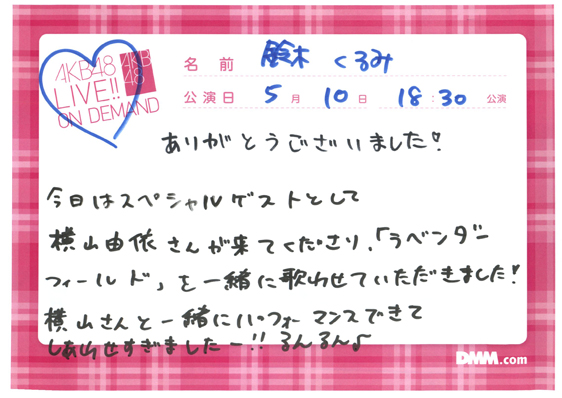 AKB48
LIVE!!
ON DEMAND
AKB
48
名前 鈴木 くるみ
公演日 5月 10日 18:30 公演
ありがとうございました!
今日はスペシャルゲストとして
横山由依さんが来てくださり、「ラベンダー
フィールド」を一緒に歌わせていただきました!
横山さんと一緒にパフォーマンスできて
しあわせすぎましたー!! るんるん♪
DMM.com